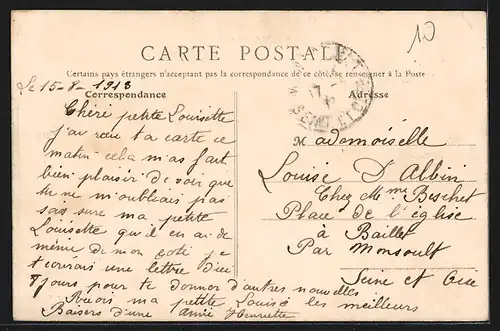 10
CARTE POSTALE
Certains pays étrangers n'acceptant pas la correspondance de ce côté, se renseigner à la Poste
Le 15-8-1913
Correspondance
Chéré petite Louisette
j'ai recu ta carte ce
matin cela m'as fait
bien plaisir de voir que
tu ne m'oubliais pas
sois sure ma petite
Louisette qu'il en ai de
même de mon coté je
t'ecrirais une lettre d'ici
8 jours pour te donner d'autres nouvelles
Recois ma petite Louise les meilleurs
Baisers d'une amie Henriette
Adresse
Mademoiselle
Louise D'Albin
Chez Mme Beschet
Place de l'église
à Baillet
Par Monsoult
Seine et Oise